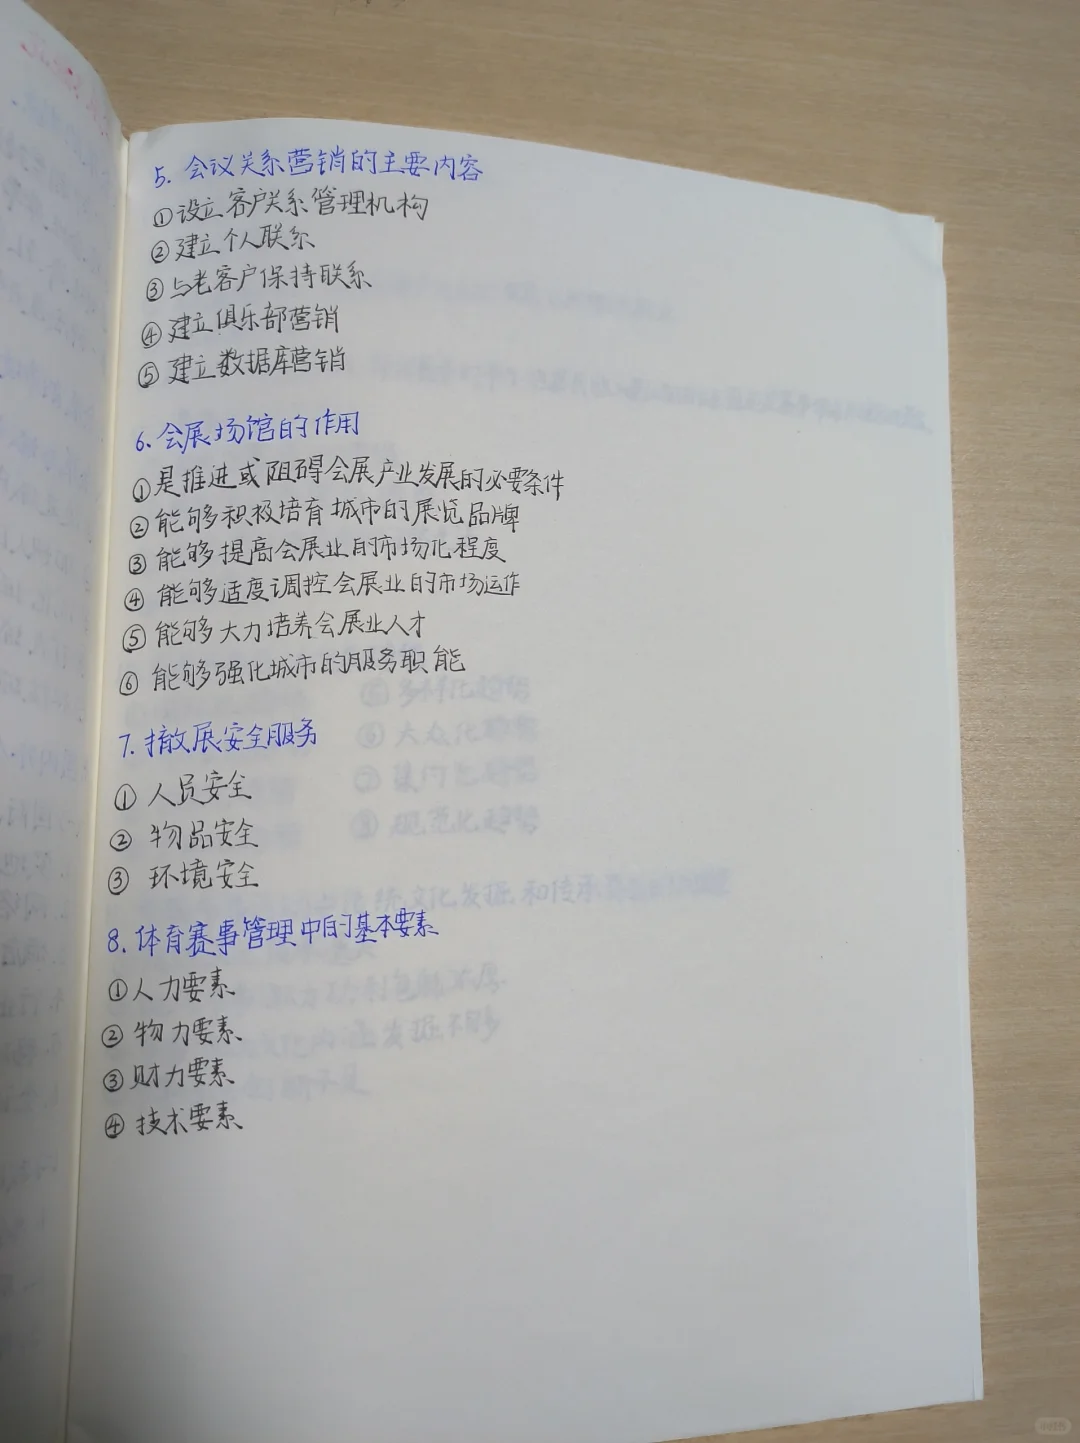 5. 会议关系营销的主要内容
①设立客户关系管理机构
②建立个人联系
③与老客户保持联系
④建立俱乐部营销
⑤建立数据库营销
6. 会展场馆的作用
①是推进或阻碍会展产业发展的必要条件
②能够积极培育城市的展览品牌
③能够提高会展业的市场化程度
④能够适度调控会展业的市场运作
⑤能够大力培养会展业人才
⑥能够强化城市的服务职能
7. 撤展安全服务
①人员安全
②物品安全
③环境安全
8. 体育赛事管理中的基本要素
①人力要素
②物力要素
③财力要素
④技术要素